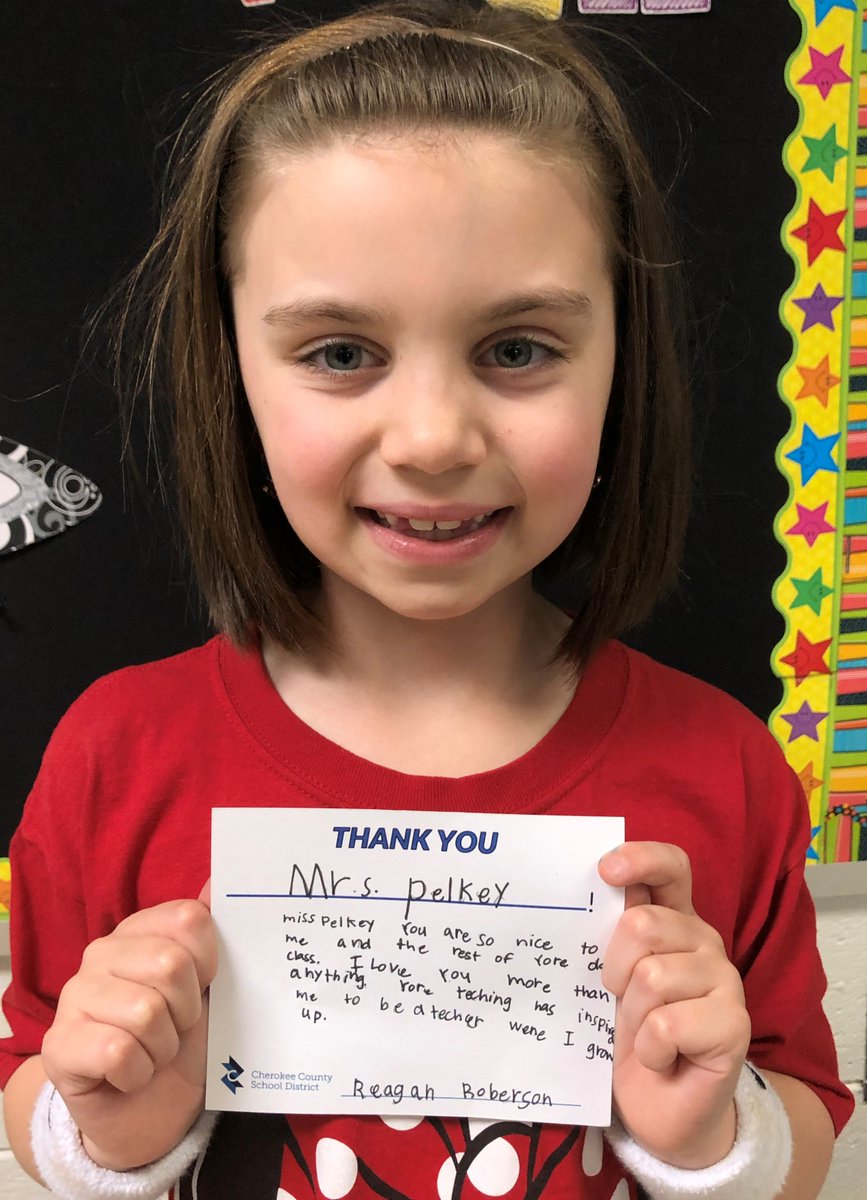 THANK YOU
Mr.s. pelkey !
miss Pelkey You are so nice to
me and the rest of yore
class. I Love you more than
anything. Yore teching has inspired
me to be a techer wene I grow
up.
Cherokee County
School District
Reagan Roberson